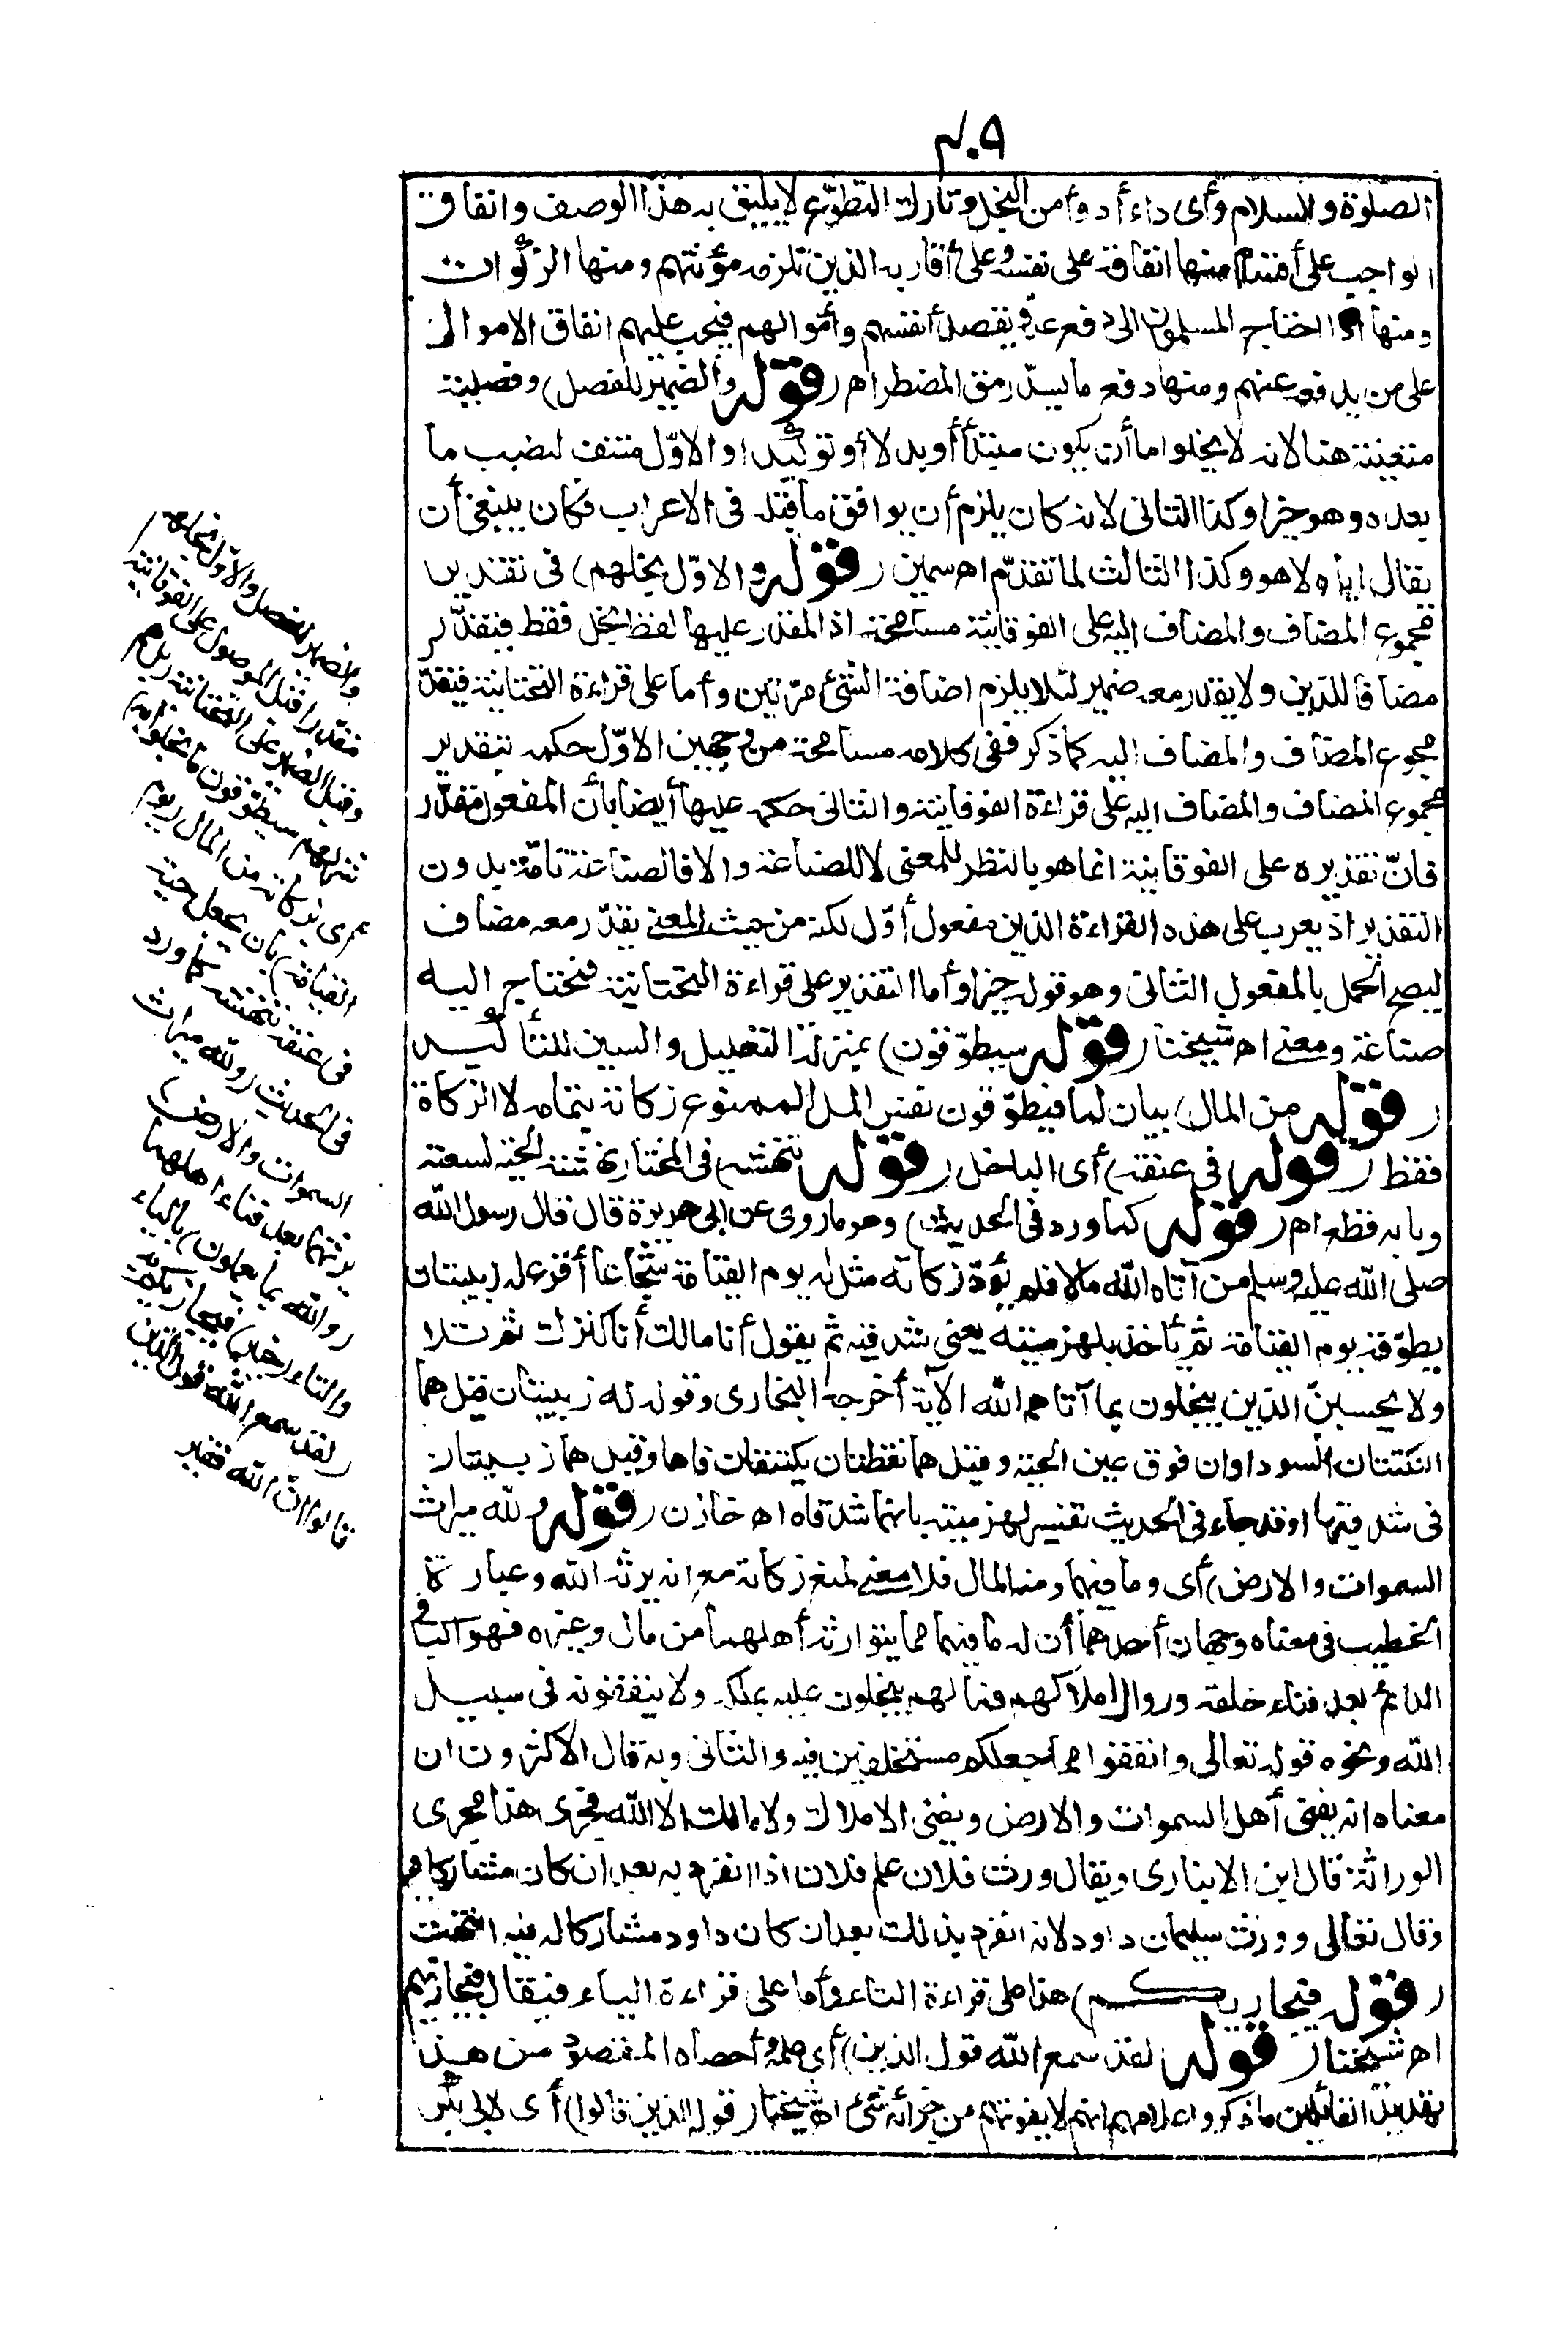 ٤٠٩
الصلوة والسلام وأى داء أدوأ من البخل وتارك التطوّع لا يليق به هذا الوصف وانفاق
الواجب على أقسام منها انفاقه على نفسه وعلى أقاربه الذين تلزمه مؤنتهم ومنها الزكوات
ومنها اذا احتاج المسلمون الى دفع عدوّ يقصد أنفسهم وأموالهم فيجب عليهم انفاق الاموال
على من يدفعه عنهم ومنها دفع ما يسدّ رمق المضطر اهـ (قوله والضمير للفصل) وفصليته
متعينة هنا لانه لا يخلو اما أن يكون مبتدأ أو بدلا أو توكيدا والاوّل منتف لنصب ما
بعده وهو خيرا وكذا الثانى لانه كان يلزم أن يوافق ما قبله فى الاعراب فكان ينبغى أن
يقال اياه لا هو وكذا الثالث لما تقدّم اهـ سمين (قوله والاوّل بخلهم) فى تقدير
مجموع المضاف والمضاف اليه على الفوقانية مسامحة اذ المقدر عليها لفظ بخل فقط فيقدّر
مضافا للذين ولا يقدر معه ضمير لئلا يلزم اضافة الشئ مرّتين وأما على قراءة التحتانية فيقدّر
مجموع المضاف والمضاف اليه كما ذكر ففى كلامه مسامحة من وجهين الاوّل حكمه بتقدير
مجموع المضاف والمضاف اليه على قراءة الفوقانية والثانى حكمه عليها أيضا بأن المفعول مقدّر
فانّ تقديره على الفوقانية انما هو بالنظر للمعنى لا للصناعة والا فالصناعة تامّة بدون
التقدير اذ يعرب على هذه القراءة الذين مفعول أوّل لكنه من حيث المعنى يقدّر معه مضاف
ليصح الحمل بالمفعول الثانى وهو قوله خيرا وأما التقدير على قراءة التحتانية فيحتاج اليه
صناعة ومعنى اهـ شيخنا (قوله سيطوّقون) بمنزلة التعليل والسين للتأكيد
(قوله من المال) بيان لما فيطوّقون نفس المال الممنوع زكاته بتمامه لا الزكاة
فقط (قوله فى عنقه) أى الباخل (قوله تنهشه) فى المختار نهشته الحية لسعته
وبابه قطع اهـ (قوله كما ورد فى الحديث) وهو ما روى عن أبى هريرة قال قال رسول الله
صلى الله عليه وسلم من آتاه الله مالا فلم يؤدّ زكاته مثل له يوم القيامة شجاعا أقرع له زبيبتان
يطوّقه يوم القيامة ثم يأخذ بلهزمتيه يعنى شدقيه ثم يقول أنا مالك أنا كنزك ثم تلا
ولا يحسبنّ الذين يبخلون بما آتاهم الله الآية أخرجه البخارى وقوله له زبيبتان قيل هما
النكتتان السوداوان فوق عين الحية وقيل هما نقطتان يكتنفان فاها وقيل هما زبيبتان
فى شدقيها وقد جاء فى الحديث تفسير لهزمتيه بانهما شدقاه اهـ خازن (قوله ولله ميراث
السموات والارض) أى وما فيهما ومنه المال فلا معنى لمنع زكاته مع انه يرثه الله وعبارة
الخطيب فى معناه وجهان أحدهما أن له ما فيهما مما يتوارثه أهلهما من مال وغيره فهو الباقى
الدائم بعد فناء خلقه وزوال املاكهم فما لهم يبخلون عليه بملكه ولا ينفقونه فى سبيل
الله ونحوه قوله تعالى وانفقوا مما جعلكم مستخلفين فيه والثانى وبه قال الاكثرون ان
معناه انه يفنى أهل السموات والارض ويفنى الاملاك ولا مالك الا الله فجرى هذا مجرى
الوراثة قال ابن الانبارى ويقال ورث فلان علم فلان اذا انفرد به بعد ان كان مشاركا فيه
وقال تعالى وورث سليمان داود لانه انفرد بذلك بعد ان كان داود مشاركا له فيه انتهت
(قوله فيجازيكم) هذا على قراءة التاء وأما على قراءة الياء فيقال فيجازيهم
اهـ شيخنا (قوله لقد سمع الله قول الذين) أى علمه وأحصاه المقصود من هذا
تهديد القائلين ما ذكر واعلامهم انهم لا يفوتهم من جزائه شئ اهـ شيخنا (قوله الذين قالوا) أى لابى بكر
والضمير للفصل والاوّل بخلهم
مقدرا قبل الموصول على الفوقانية
وقبل الضمير على التحتانية (بل هو
شر لهم سيطوّقون ما بخلوا به)
أى بزكاته من المال (يوم
القيامة) بان يجعل حية
فى عنقه تنهشه كما ورد
فى الحديث (ولله ميراث
السموات والارض)
يرثهما بعد فناء اهلهما
(والله بما يعملون) بالياء
والتاء (خبير) فيجازيكم به
(لقد سمع الله قول الذين
قالوا ان الله فقير